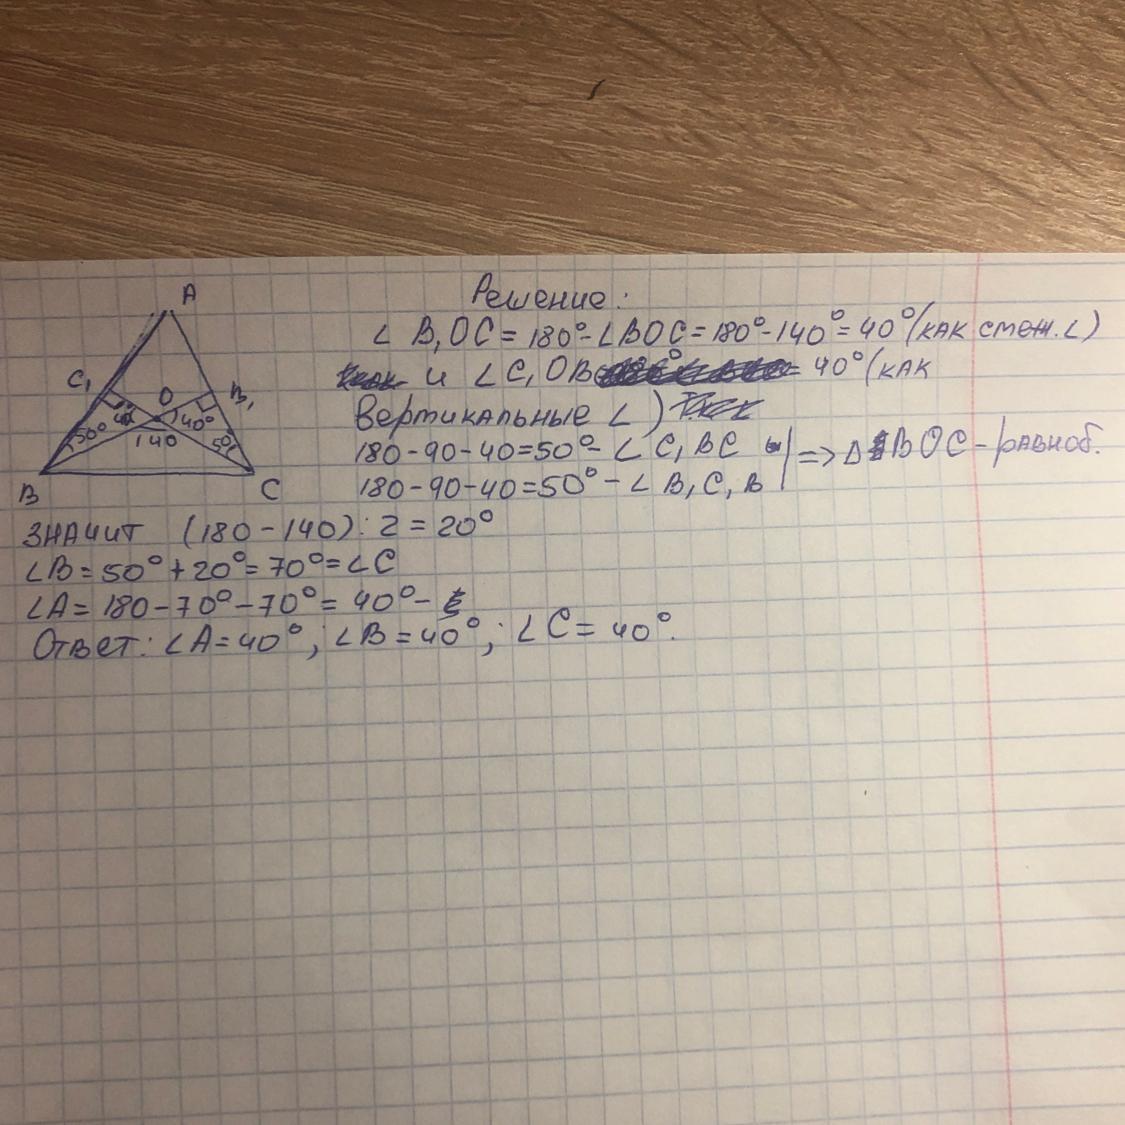 A
C₁
O
B₁
50° 40° 40° 50°
140
B
C
Решение:
∠ B₁OC = 180° - ∠BOC = 180° - 140° = 40° (как смеж. ∠)
и ∠ C₁OB = 40° (как
вертикальные ∠)
180 - 90 - 40 = 50° - ∠ C₁BC
180 - 90 - 40 = 50° - ∠ B₁C₁B
=> Δ BOC - равноб.
значит (180 - 140) : 2 = 20°
∠B = 50° + 20° = 70° = ∠C
∠A = 180 - 70° - 70° = 40° -
Ответ: ∠A = 40°; ∠B = 40°; ∠C = 40°.